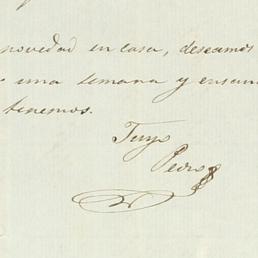 novedad en casa, deseamos
una semana y
tenemos.
Tuyo
Pedro